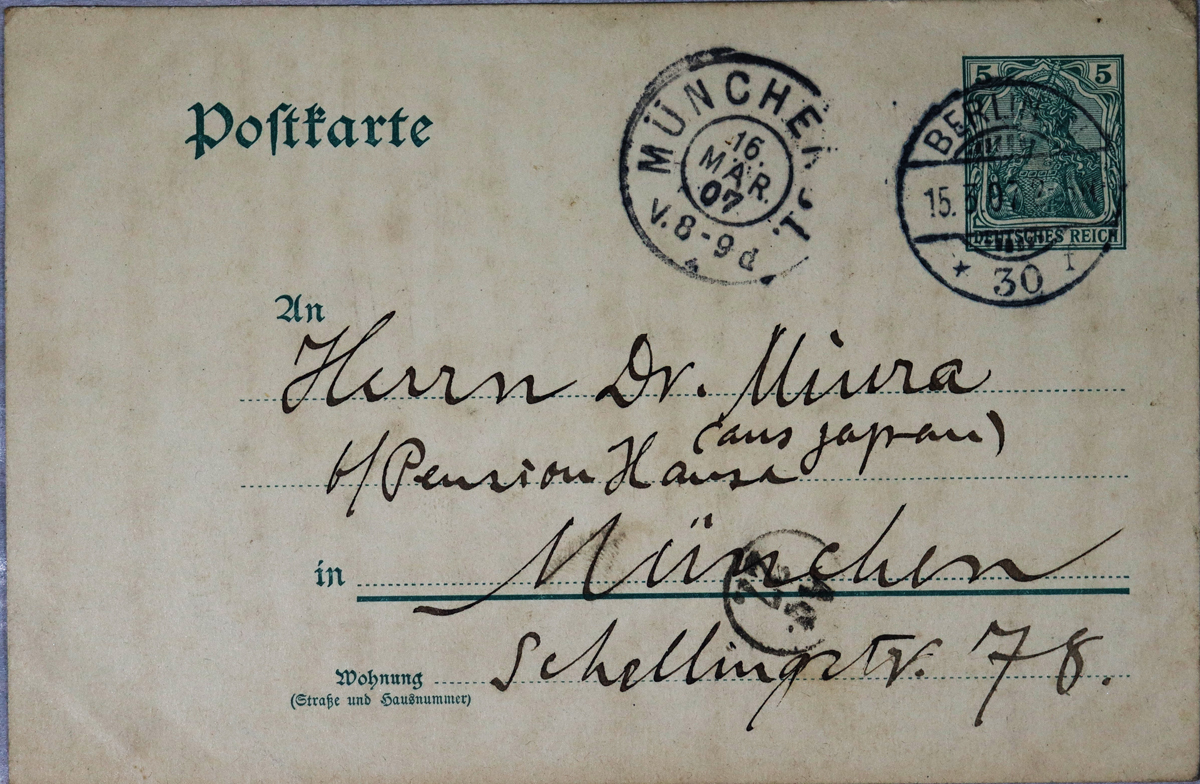 Postkarte
MÜNCHEN
16.
MÄR.
07
V. 8-9 d
5 5
BERLIN
15.3.07
DEUTSCHES REICH
* 30 I
An
Herrn Dr. Miura
(aus Japan)
b/Pension Hansa
in München
22
Schellingstr. 78.
Wohnung
(Straße und Hausnummer)